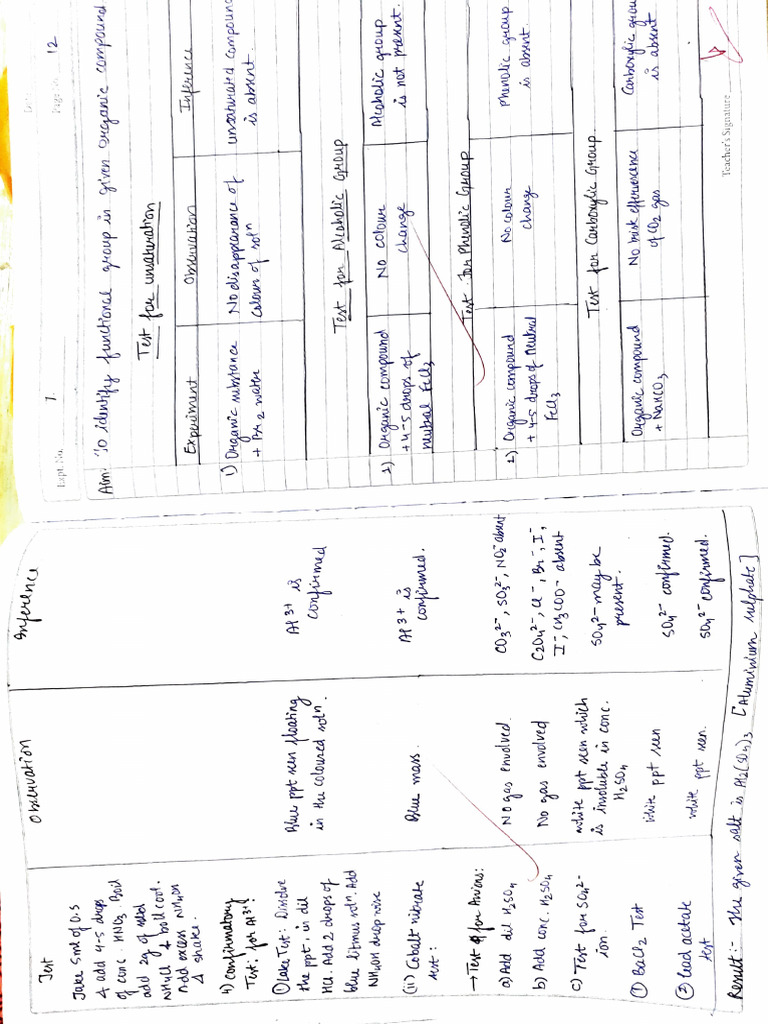 Test
Observation
Inference
Take 5ml of O.S
& add 4-5 drops
of conc. HNO3. Boil
add 2g of solid
NH4Cl & boil cool.
Add excess NH4OH
& shake.
4) Confirmatory
Test: for Al3+:
① Lake Test: Dissolve
the ppt. in dil
HCl. Add 2 drops of
blue litmus solⁿ. Add
NH4OH drop wise
Blue ppt seen floating
in the coloured solⁿ.
Al3+ is
confirmed
(ii) Cobalt nitrate
test:
Blue mass.
Al3+ is
confirmed.
→ Test for Anions:
a) Add dil H2SO4
No gas envolved.
CO3²⁻, SO3²⁻, NO2⁻ absent
b) Add conc. H2SO4
No gas envolved
C2O4²⁻, Cl⁻, Br⁻, I⁻,
I⁻, CH3COO⁻ absent
c) Test for SO4²⁻
ion.
white ppt seen which
is insoluble in conc.
H2SO4
SO4²⁻ may be
present.
① BaCl2 Test
white ppt seen
SO4²⁻ confirmed.
② Lead acetate
test
white ppt seen.
SO4²⁻ confirmed.
Result:- The given salt is Al2(SO4)3 [Aluminium sulphate]
Expt. No. 7.
Page No. 12
Aim: To identify functional group in given organic compound
Test for unsaturation
Experiment
Observation
Inference
1) Organic substance
+ Br2 water
No disappearance of
colour of solⁿ
unsaturated compound
is absent.
Test for Alcoholic Group
2) Organic compound
+ 4-5 drops of
neutral FeCl3
No colour
change
Alcoholic group
is not present.
Test for Phenolic Group
2) Organic compound
+ 4-5 drops of neutral
FeCl3
No colour
change
Phenolic group
is absent.
Test for Carboxylic Group
Organic compound
+ NaHCO3
No brisk effervescence
of CO2 gas
Carboxylic group
is absent
Teacher's Signature